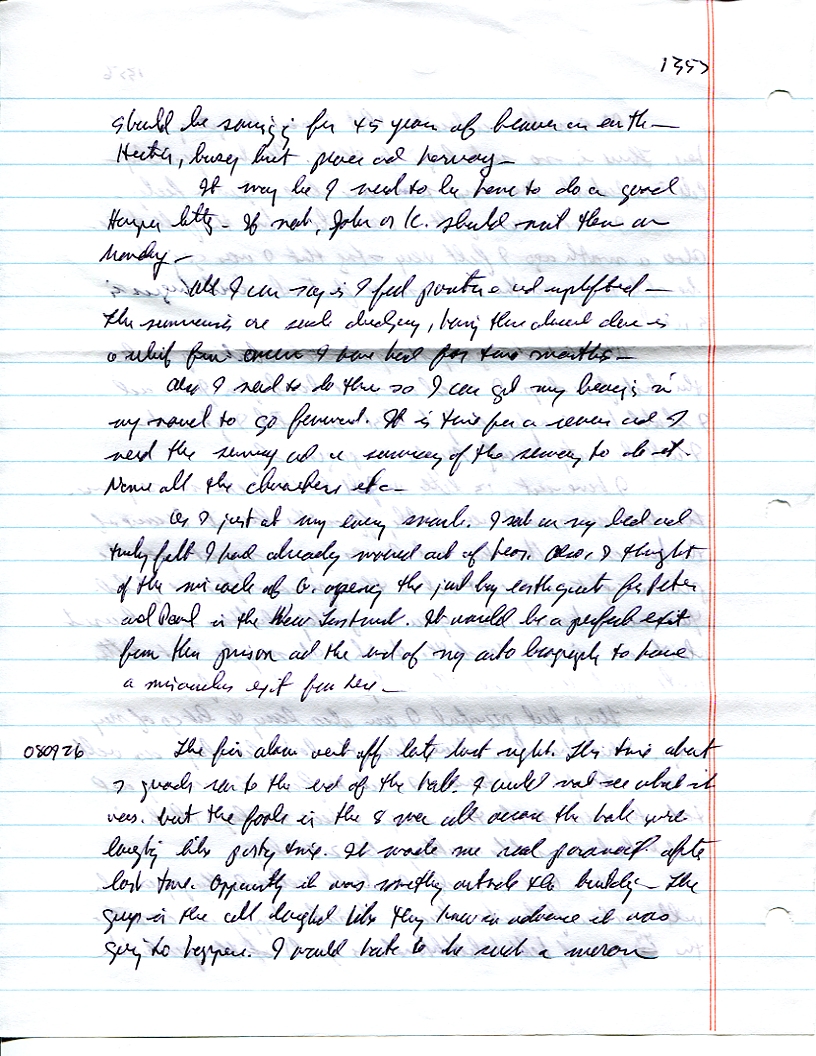 1357
should be saving for 45 years of heaven on earth—
Hectic, busy but peace and harmony—
It may be I need to be here to do a good
Harper – If not, John or K. should visit them on
Monday.—
All I can say is I feel positive and uplifted—
The summaries are such drudgery, having them almost done is
a relief from I have had for two months.—
Also I need to do them so I can get my bearings in
my novel to go forward. It is time for a review and I
need the summary and a summary of the summary to do it.
Name all the characters etc—
As I just at my evening snack. I sat on my bed and
truly felt I had already moved out of here. Also, I thought
of the miracle of G. opening the jail by earthquake for Peter
and Paul in the New Testament. It would be a perfect exit
from this prison and the end of my autobiography to have
a miraculous exit from here—
080926 The fire alarm went off late last night. This time about
7 guards ran to the end of the hall. I could not see what it
was. but the fools in the 8 man cell across the hall were
laughing like party time. It made me real paranoid after
last time. Apparently it was something outside the building— The
guys in the cell laughed like they knew in advance it was
going to happen. I would hate to be such a moron